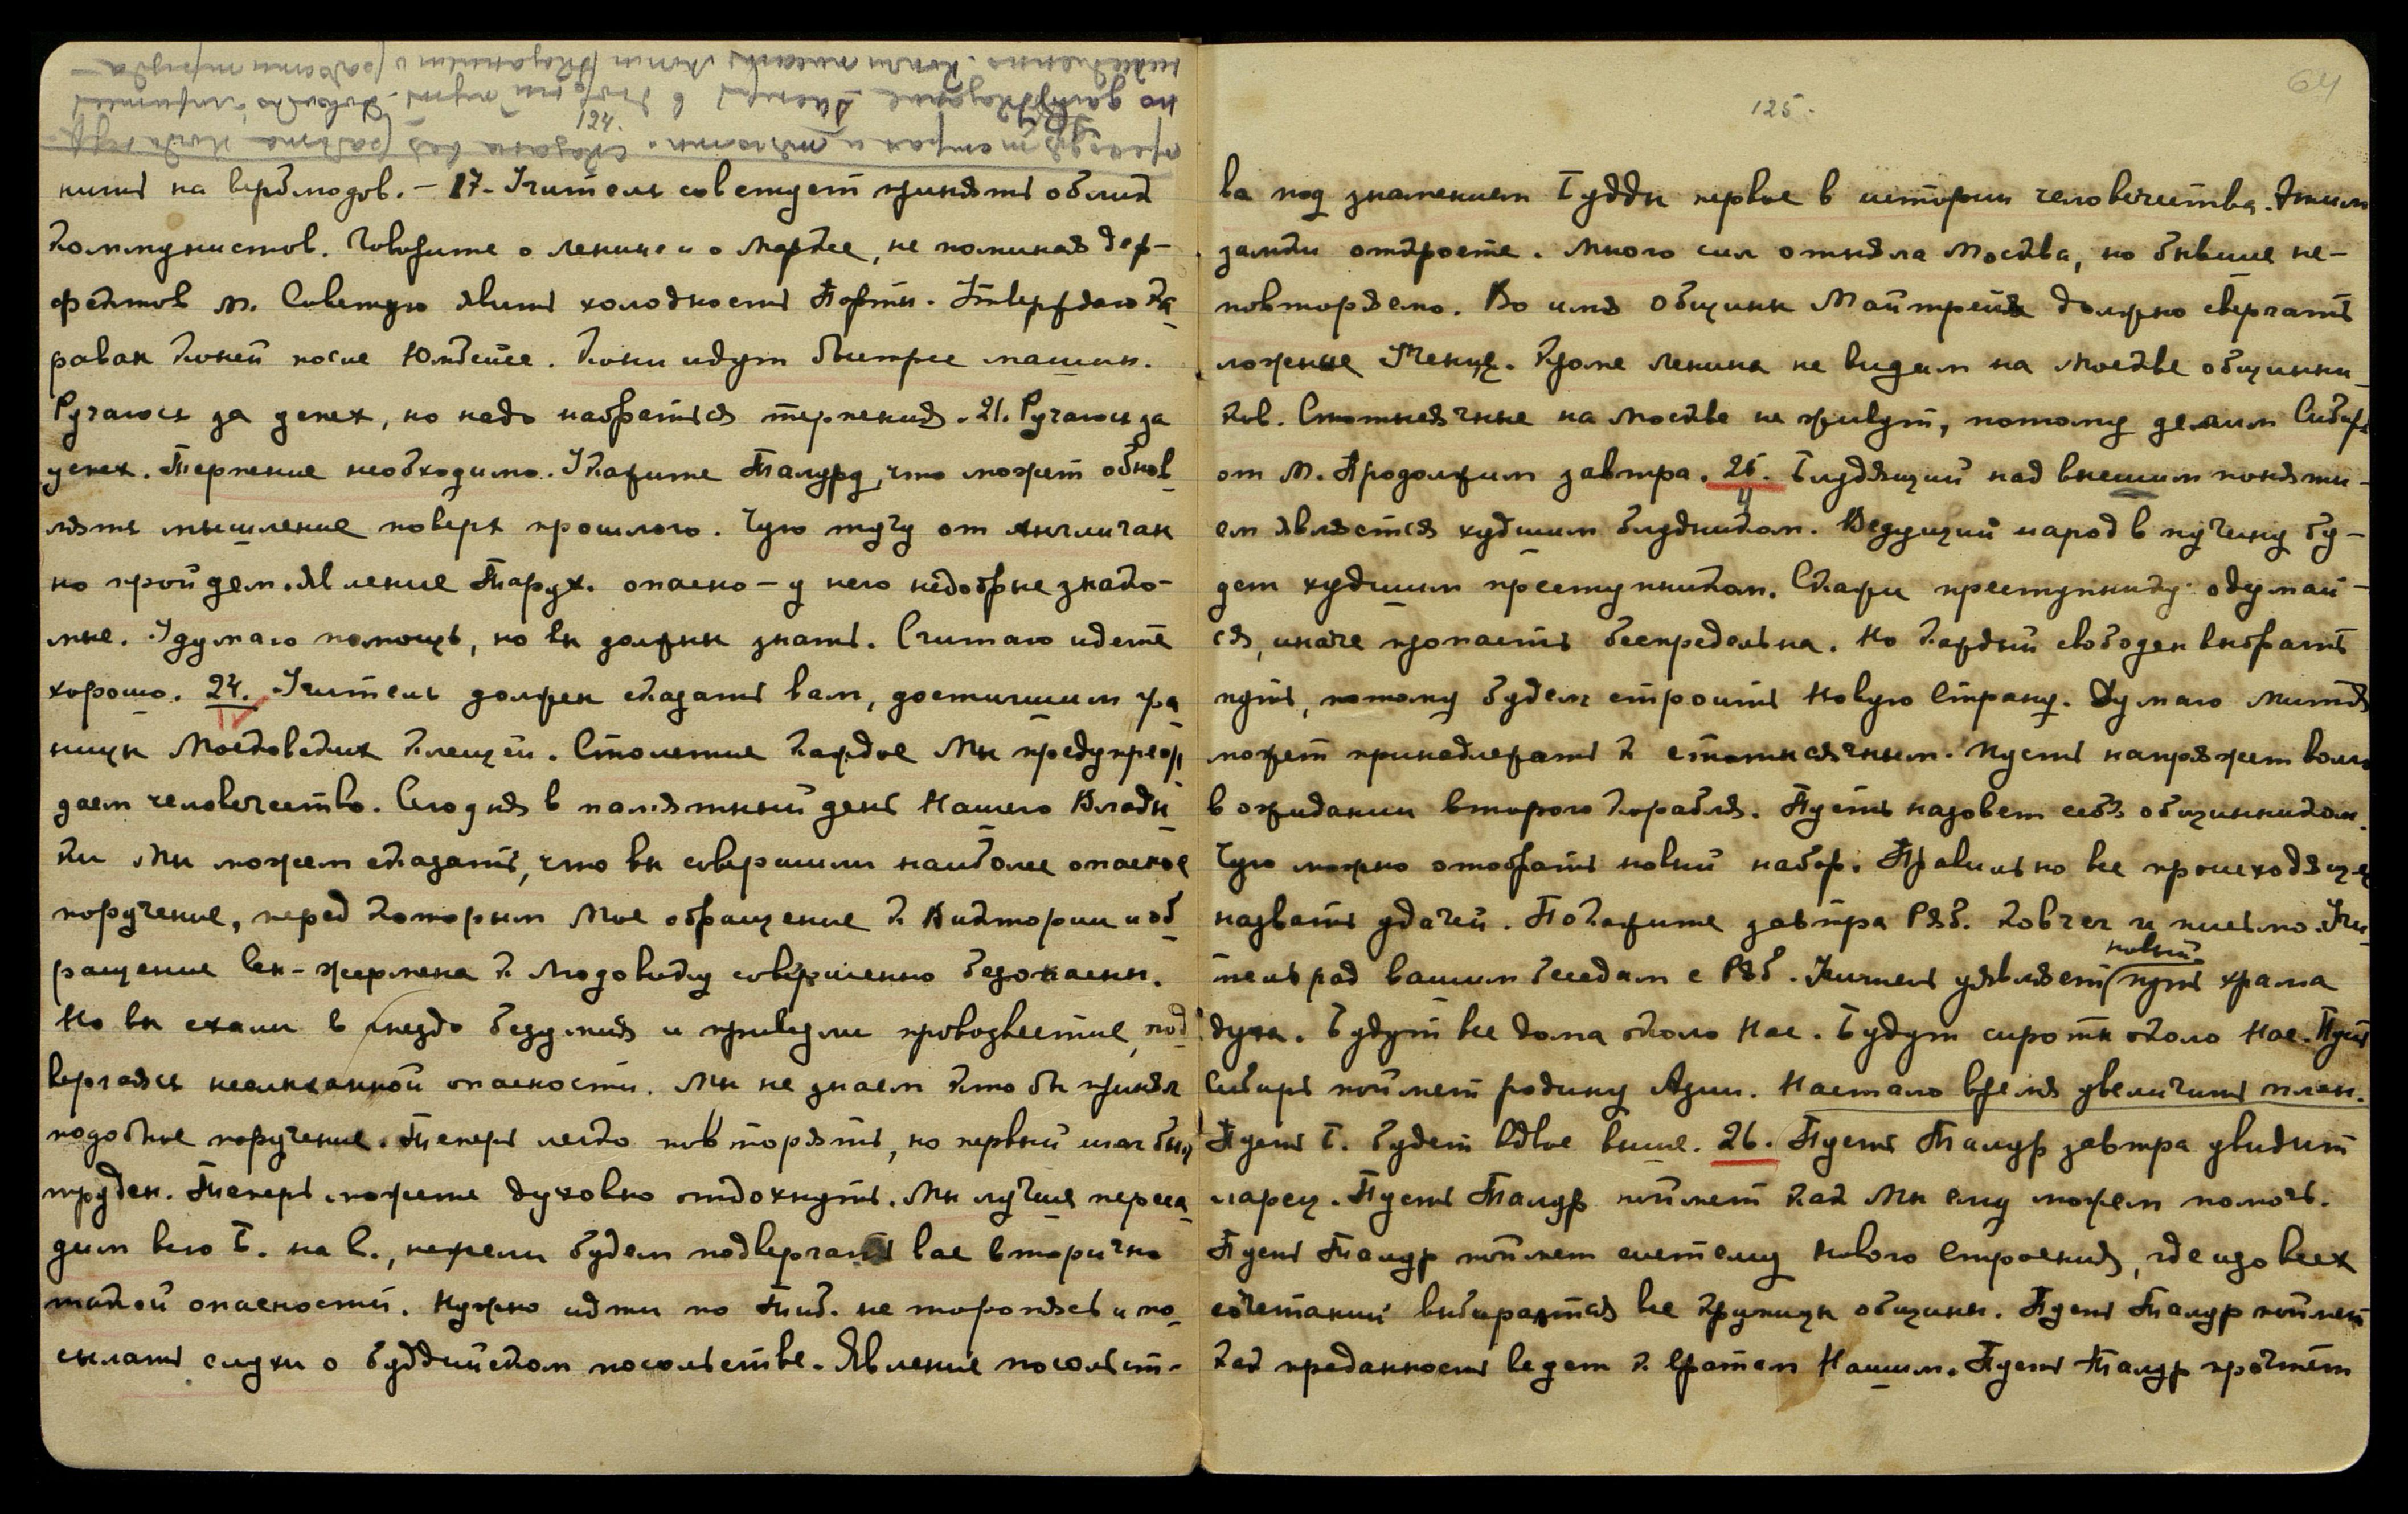 124.
нить на верблюдов. – 17. Учитель советует принять облик
коммунистов. Говорите о Ленине и о Марксе, не поминая деф-
фектов М. Советую явить холодность Порты. Утверждаю ка
раван коней после Юмбейсе. Кони идут быстрее машин.
Ручаюсь за успех, но надо набраться терпения. 21. Ручаюсь за
успех. Терпение необходимо. Укажите Талуру, что может обнов
лять мышление поверх прошлого. Чую тучу от англичан
но пройдем. Явление Тарух. опасно – у него недобрые знако-
мые. Думаю помощь, но вы должны знать. Считаю идете
хорошо. 24. Учитель должен сказать вам, достигшим гра
ницы Московских клещей. Столетие каждое Мы предупреж
даем человечество. Сегодня в памятный день Нашего Влады
ки Мы можем сказать, что вы совершили наиболее опасное
поручение, перед которым Мое обращение к Виктории и об
ращение Сен-Жермена к Людовику совершенно безопасны.
Но вы ехали в гнездо безумия и привезли провозвестие, под
вергаясь неслыханной опасности. Мы не знаем кто бы принял
подобное поручение. Теперь легко повторять, но первый шаг был
труден. Теперь можете духовно отдохнуть. Мы лучше переса
дим всю Б. на В., нежели будем подвергать вас вторично
такой опасности. Нужно идти по Тиб. не торопясь и по
сылать слухи о буддийском посольстве. Явление посольст-
64
125.
ва под знаменем Будды первое в истории человечества. Этим
замки откроете. Много сил отняла Москва, но бывшее не-
повторяемо. Во имя Общины Майтрейя должно свергать
ложные Учения. Кроме Ленина не видим на Москве общинни
ков. Стотысячные на Москве не живут, потому делим Сибирь
от М. Продолжим завтра. 25. Блудящий над внешним поняти-
ем является худшим блудником. Ведущий народ в пучину бу-
дет худшим преступником. Скажи преступнику: одумай-
ся, иначе пропасть беспредельна. Но каждый свободен выбрать
путь, потому будем строить Новую Страну. Думаю митя
может принадлежать к стотысячным. Пусть напряжет волю
в ожидании второго корабля. Пусть назовет себя общинником.
Чую можно отобрать новый набор. Правильно все происходящее
назвать удачей. Покажите завтра Ряб. Ковчег и письмо. Учи
новый
тель рад вашим беседам с Ряб. Учитель уявляет путь храма
духа. Будут все дома около Нас. Будут сироты около Нас. Пусть
Сибирь поймет родину Азии. Настало время увеличить план.
Пусть Б. будет вдвое выше. 26. Пусть Талур завтра увидит
ларец. Пусть Талур поймет как Мы ему можем помочь.
Пусть Талур поймет систему Нового Строения, где изо всех
сочетаний выбираются все крупицы общины. Пусть Талур поймет
как преданность ведет к вратам Нашим. Пусть Талур прочтет